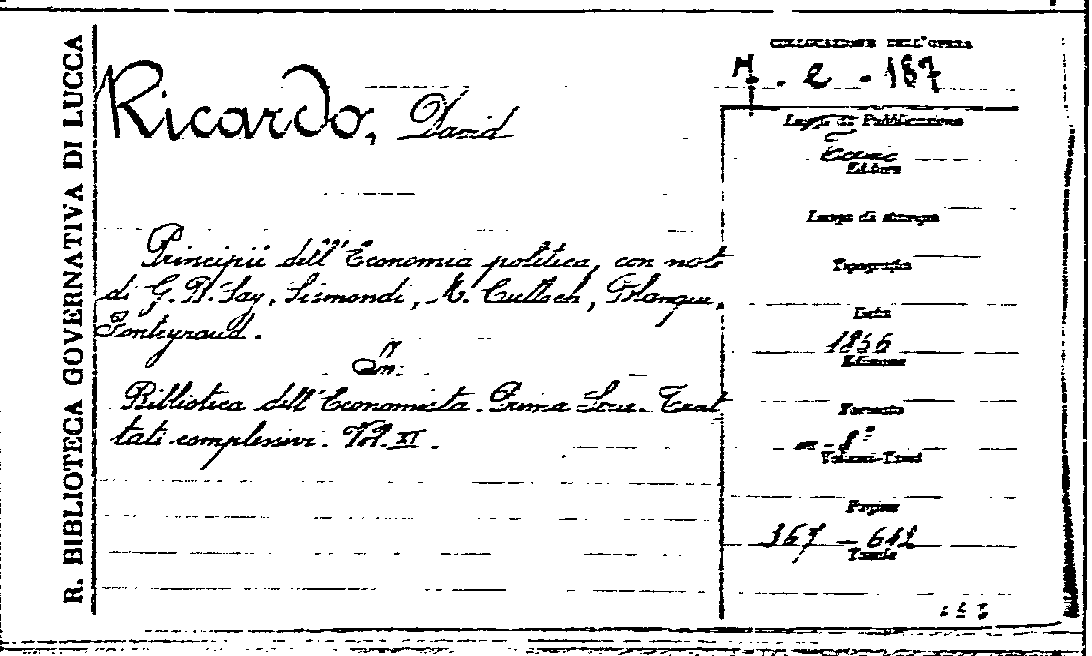 R. BIBLIOTECA GOVERNATIVA DI LUCCA
Ricardo, David
Principii dell'Economia politica, con note
di G. B. Say, Sismondi, M. Culloch, Blanqui,
Fonteyraud.
In:
Biblioteca dell'Economista. Prima Serie. Trat
tati complessivi. Vol. XI.
COLLOCAZIONE DELL'OPERA
7. e - 187
Luogo di Pubblicazione
Torino
Editore
Luogo di stampa
Tipografia
Data
1856
Edizione
Formato
8º
Volumi-Tomi
Pagine
367 - 642
Tavole